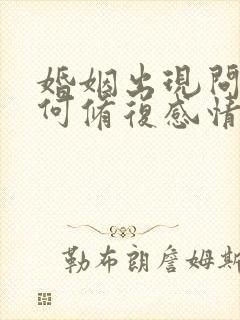 婚姻出現問
何脩復感情
勒布朗詹姆斯